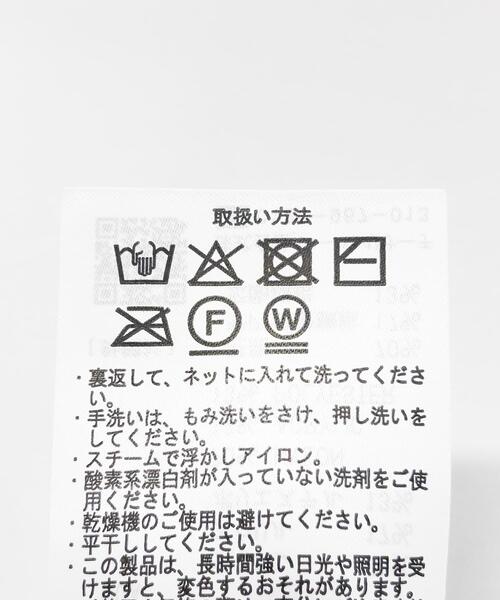 取扱い方法
F
W
・裏返して、ネットに入れて洗ってくださ
い。
・手洗いは、もみ洗いをさけ、押し洗いを
してください。
・スチームで浮かしアイロン。
・酸素系漂白剤が入っていない洗剤をご使
用ください。
・乾燥機のご使用は避けてください。
・平干ししてください。
・この製品は、長時間強い日光や照明を受
けますと、変色するおそれがあります。